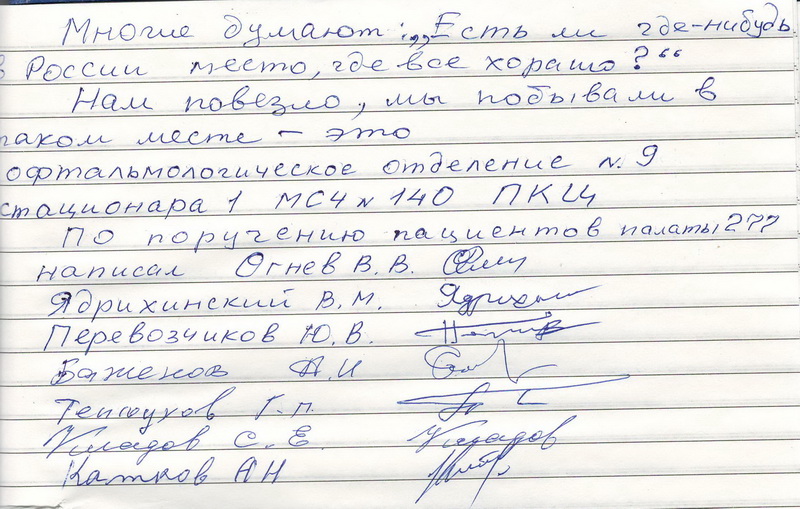 Многие думают: „Есть ли где-нибудь
в России место, где все хорошо?“
Нам повезло, мы побывали в
таком месте – это
офтальмологическое отделение №9
стационара 1 МСЧ №140 ПКЦ
По поручению пациентов палаты 277
написал Огнев В.В.
Ядрихинский В.М. Ядрихин
Перевозчиков Ю.В.
Баженов А.И
Г.п.
С.Е.
Катков АН